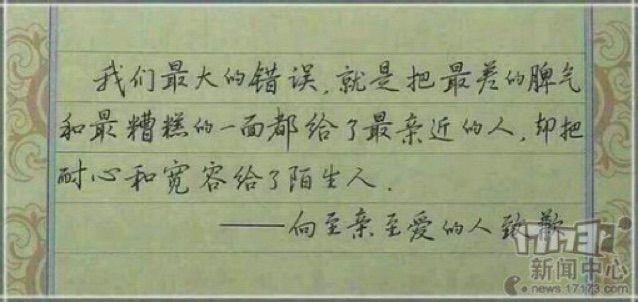 我们最大的错误,就是把最差的脾气
和最糟糕的一面都给了最亲近的人,却把
耐心和宽容给了陌生人.
——向至亲至爱的人致歉
17173
新闻中心
news.17173.com